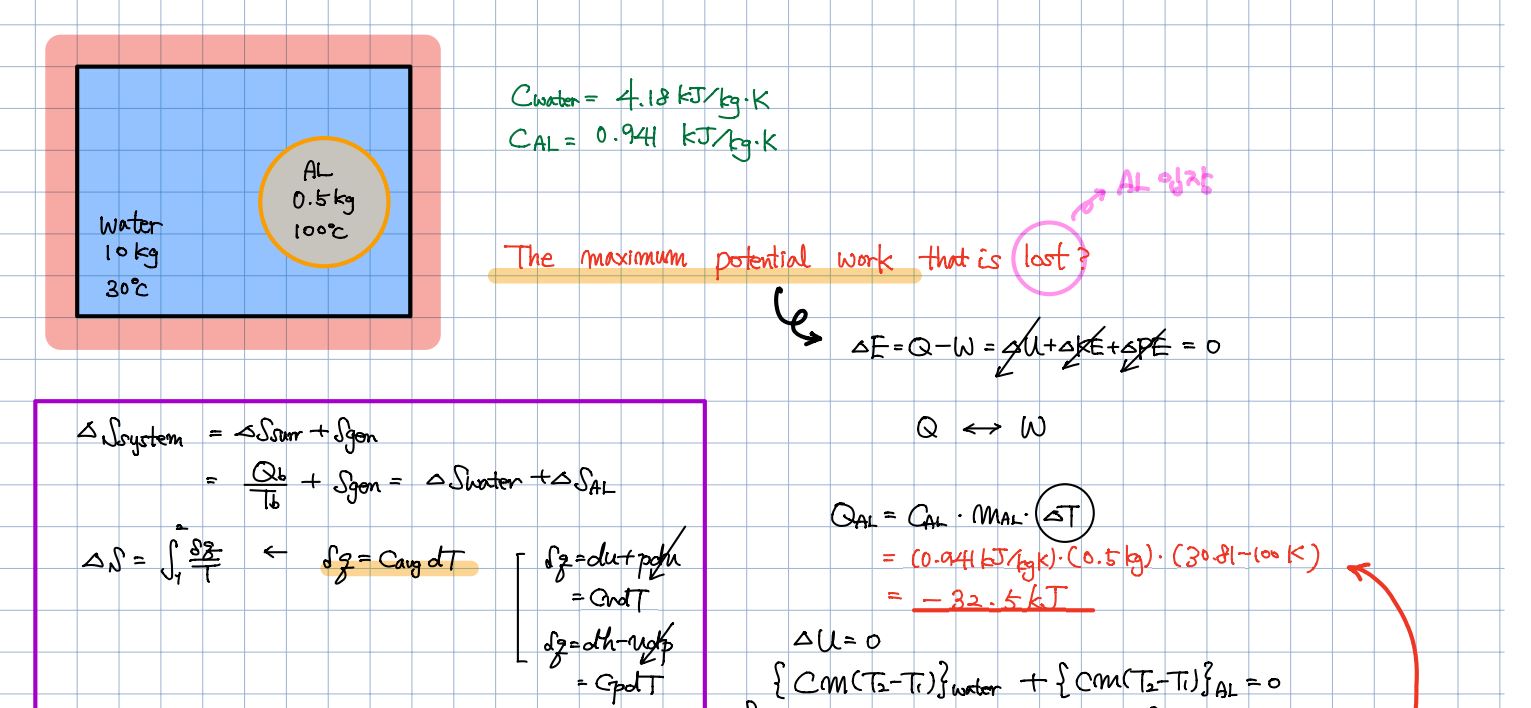 Cwater = 4.18 kJ/kg·K
CAL = 0.941 kJ/kg·K
AL
0.5 kg
100°C
Water
10 kg
30°C
AL 입장
The maximum potential work that is lost?
ΔE = Q - W = ΔU + ΔKE + ΔPE = 0
Q ↔ W
ΔSsystem = ΔSsurr + Sgen
= Qb/Tb + Sgen = ΔSwater + ΔSAL
ΔS = ∫₁² δq/T ← δq = Cavg dT
δq = du + pdv
= CvdT
δq = dh - vdp
= CpdT
QAL = CAL · mAL · ΔT
= (0.941 kJ/kgK) · (0.5 kg) · (30.81-100 K)
= -32.5 kJ
ΔU = 0
{Cm(T₂-T₁)}water + {Cm(T₂-T₁)}AL = 0